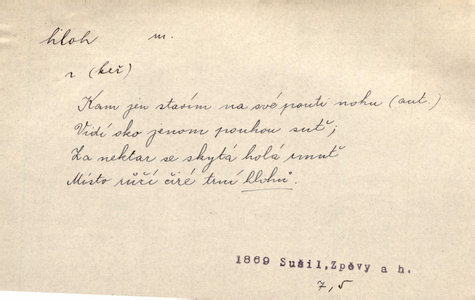 hloh m.
r (keř)
Kam jen stavím na své pouti nohu (aut.)
Vidí oko jenom pouhou suť;
Za nektar se skytá holá rmuť
Místo růží čiré trní hlohů.
1869 Sušil, Zpěvy a h.
7,5